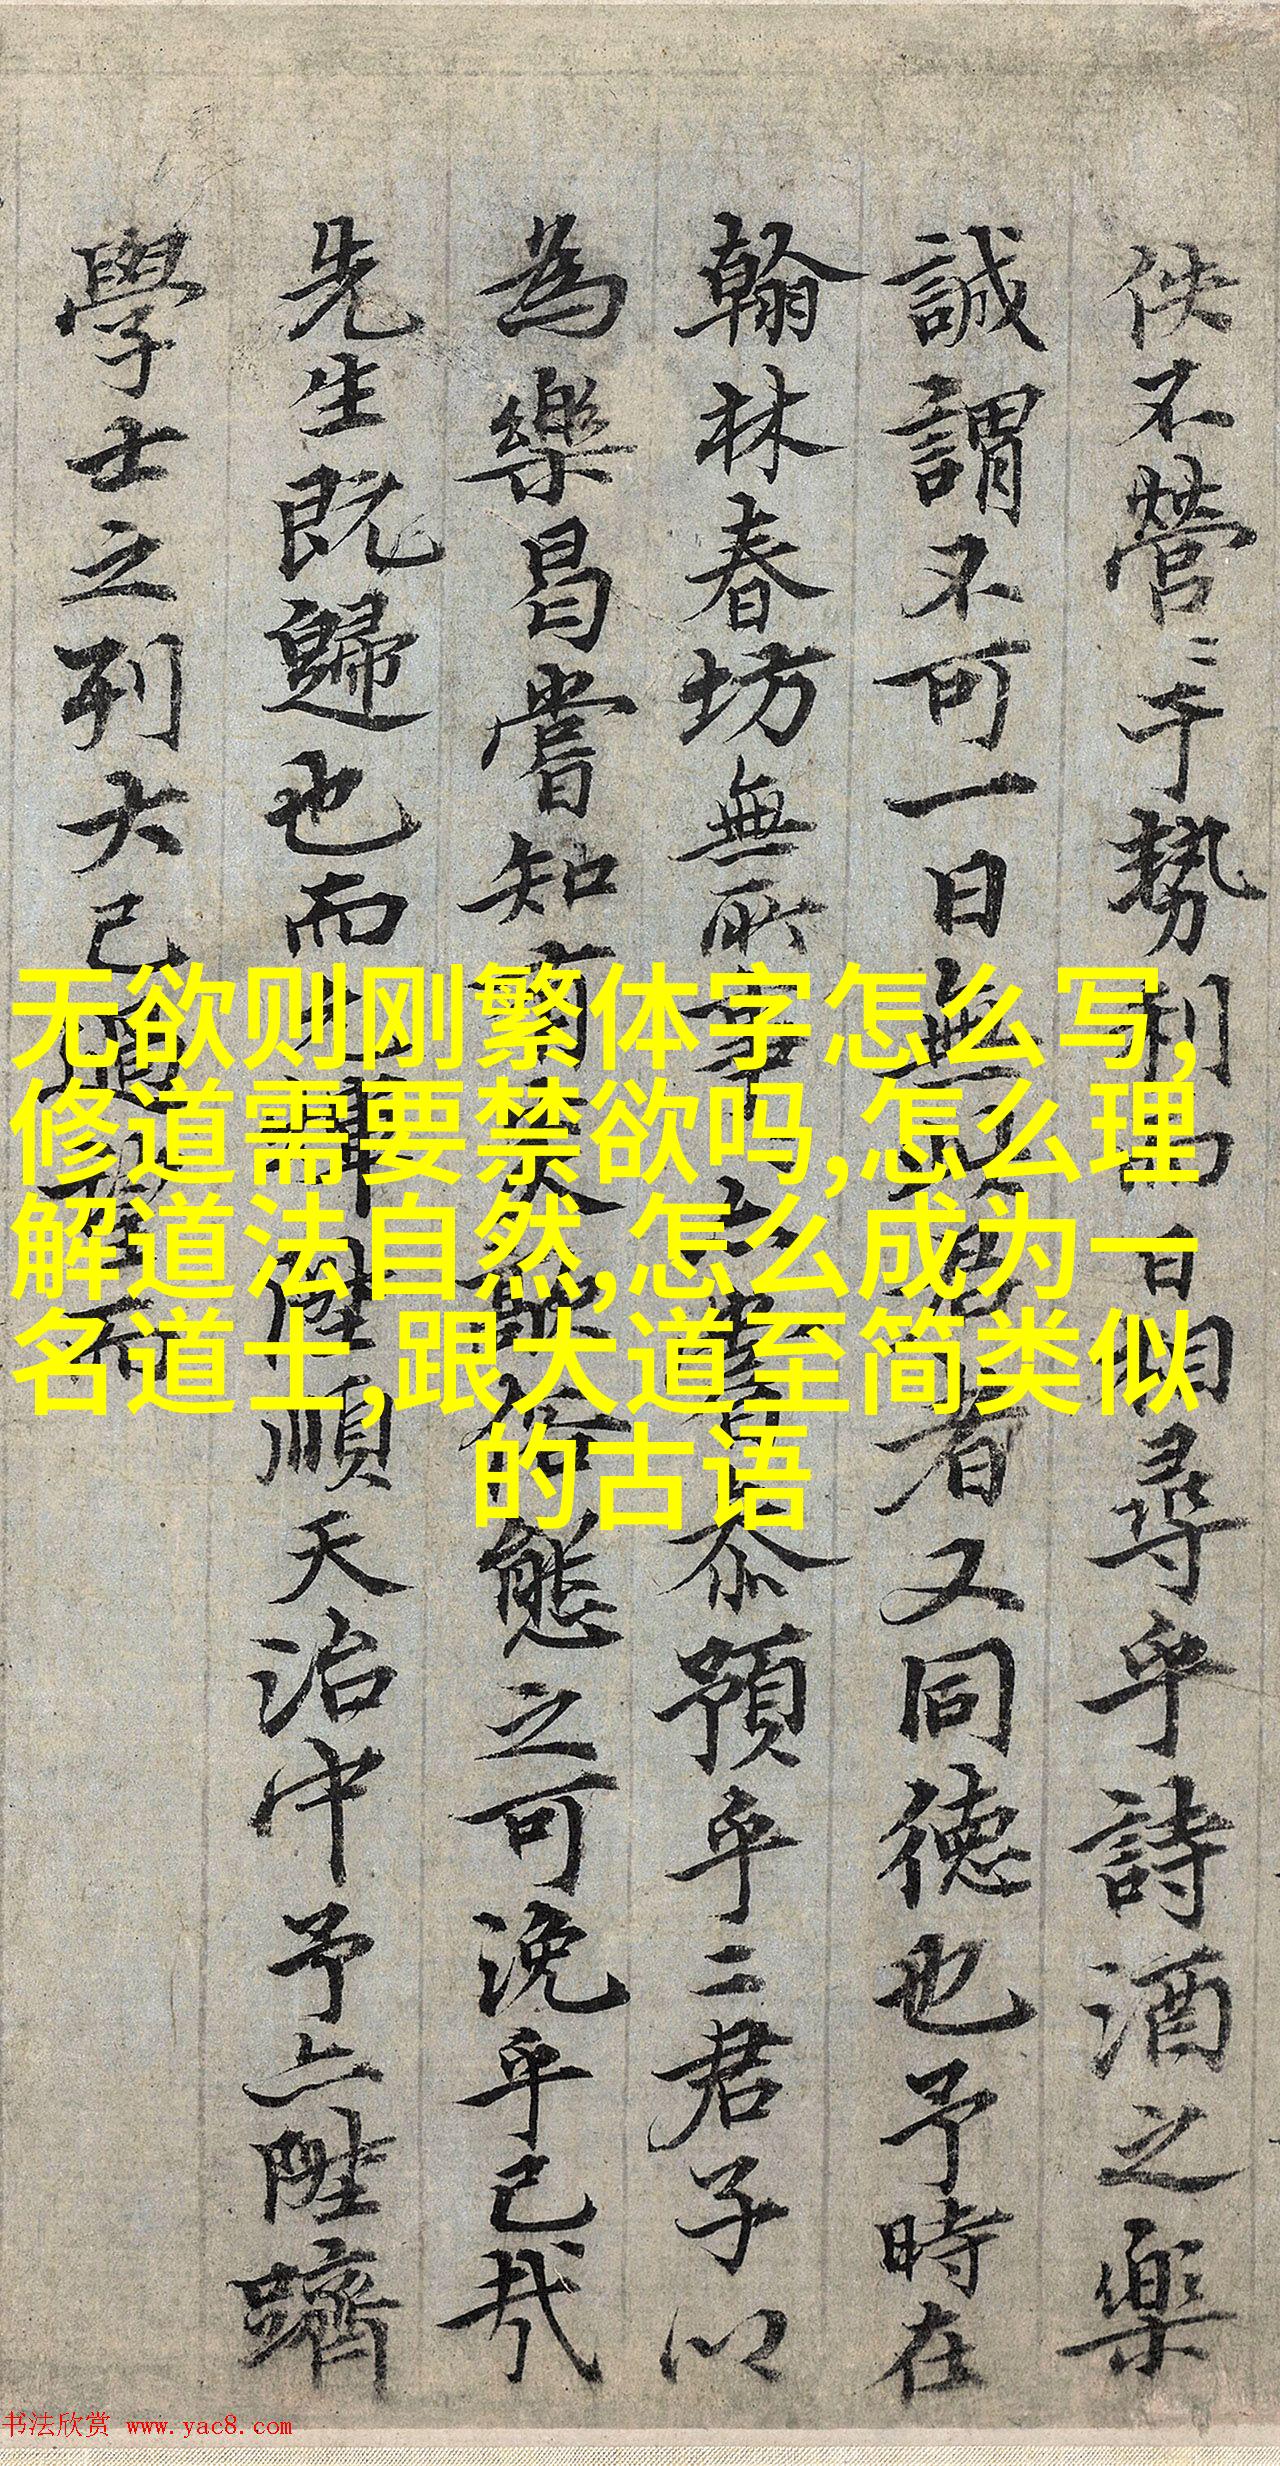 佚不營〻于勢利日相尋乎詩酒之樂
誠謂不可一日無君者又同德也予時在
翰林春坊無所事忝預乎二君子以
為樂曷嘗知有俗態之可浼乎已哉
先生既歸也而順天治中予亦陞躋
學士之列大已而
无欲则刚繁体字怎么写,
修道需要禁欲吗,怎么理
解道法自然,怎么成为一
名道士,跟大道至简类似
的古语
书法欣赏 www.yac8.com